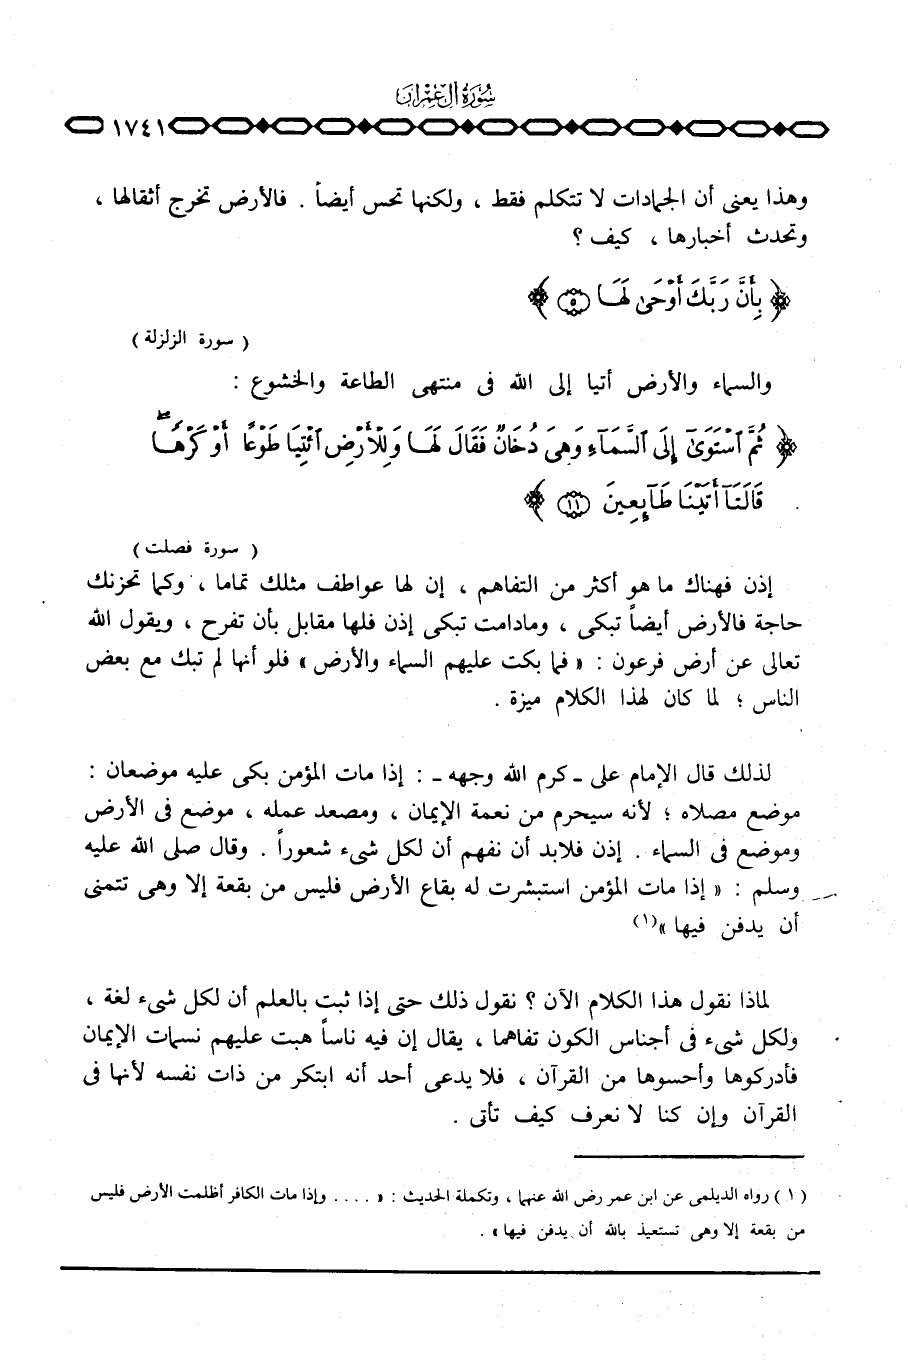 سُورَةُ آلِ عِمْرَانَ
١٧٤١
وهذا يعنى أن الجمادات لا تتكلم فقط ، ولكنها تحس أيضاً . فالأرض تخرج أثقالها ،
وتحدث أخبارها ، كيف ؟
﴿ بِأَنَّ رَبَّكَ أَوْحَىٰ لَهَا ۝٥ ﴾
( سورة الزلزلة )
والسماء والأرض أتيا إلى الله فى منتهى الطاعة والخشوع :
﴿ ثُمَّ ٱسْتَوَىٰٓ إِلَى ٱلسَّمَآءِ وَهِىَ دُخَانٌ فَقَالَ لَهَا وَلِلْأَرْضِ ٱئْتِيَا طَوْعًا أَوْ كَرْهًا ۖ
قَالَتَآ أَتَيْنَا طَآئِعِينَ ۝١١ ﴾
( سورة فصلت )
إذن فهناك ما هو أكثر من التفاهم ، إن لها عواطف مثلك تماما ، وكما تحزنك
حاجة فالأرض أيضاً تبكى ، ومادامت تبكى إذن فلها مقابل بأن تفرح ، ويقول الله
تعالى عن أرض فرعون : « فما بكت عليهم السماء والأرض » فلو أنها لم تبك مع بعض
الناس ؛ لما كان لهذا الكلام ميزة .
لذلك قال الإمام على ـ كرم الله وجهه ـ : إذا مات المؤمن بكى عليه موضعان :
موضع مصلاه ؛ لأنه سيحرم من نعمة الإيمان ، ومصعد عمله ، موضع فى الأرض
وموضع فى السماء . إذن فلابد أن نفهم أن لكل شىء شعوراً . وقال صلى الله عليه
وسلم : « إذا مات المؤمن استبشرت له بقاع الأرض فليس من بقعة إلا وهى تتمنى
أن يدفن فيها »(١)
لماذا نقول هذا الكلام الآن ؟ نقول ذلك حتى إذا ثبت بالعلم أن لكل شىء لغة ،
ولكل شىء فى أجناس الكون تفاهما ، يقال إن فيه ناساً هبت عليهم نسمات الإيمان
فأدركوها وأحسوها من القرآن ، فلا يدعى أحد أنه ابتكر من ذات نفسه لأنها فى
القرآن وإن كنا لا نعرف كيف تأتى .
( ١ ) رواه الديلمى عن ابن عمر رضى الله عنهما ، وتكملة الحديث : « .... وإذا مات الكافر أظلمت الأرض فليس
من بقعة إلا وهى تستعيذ بالله أن يدفن فيها » .